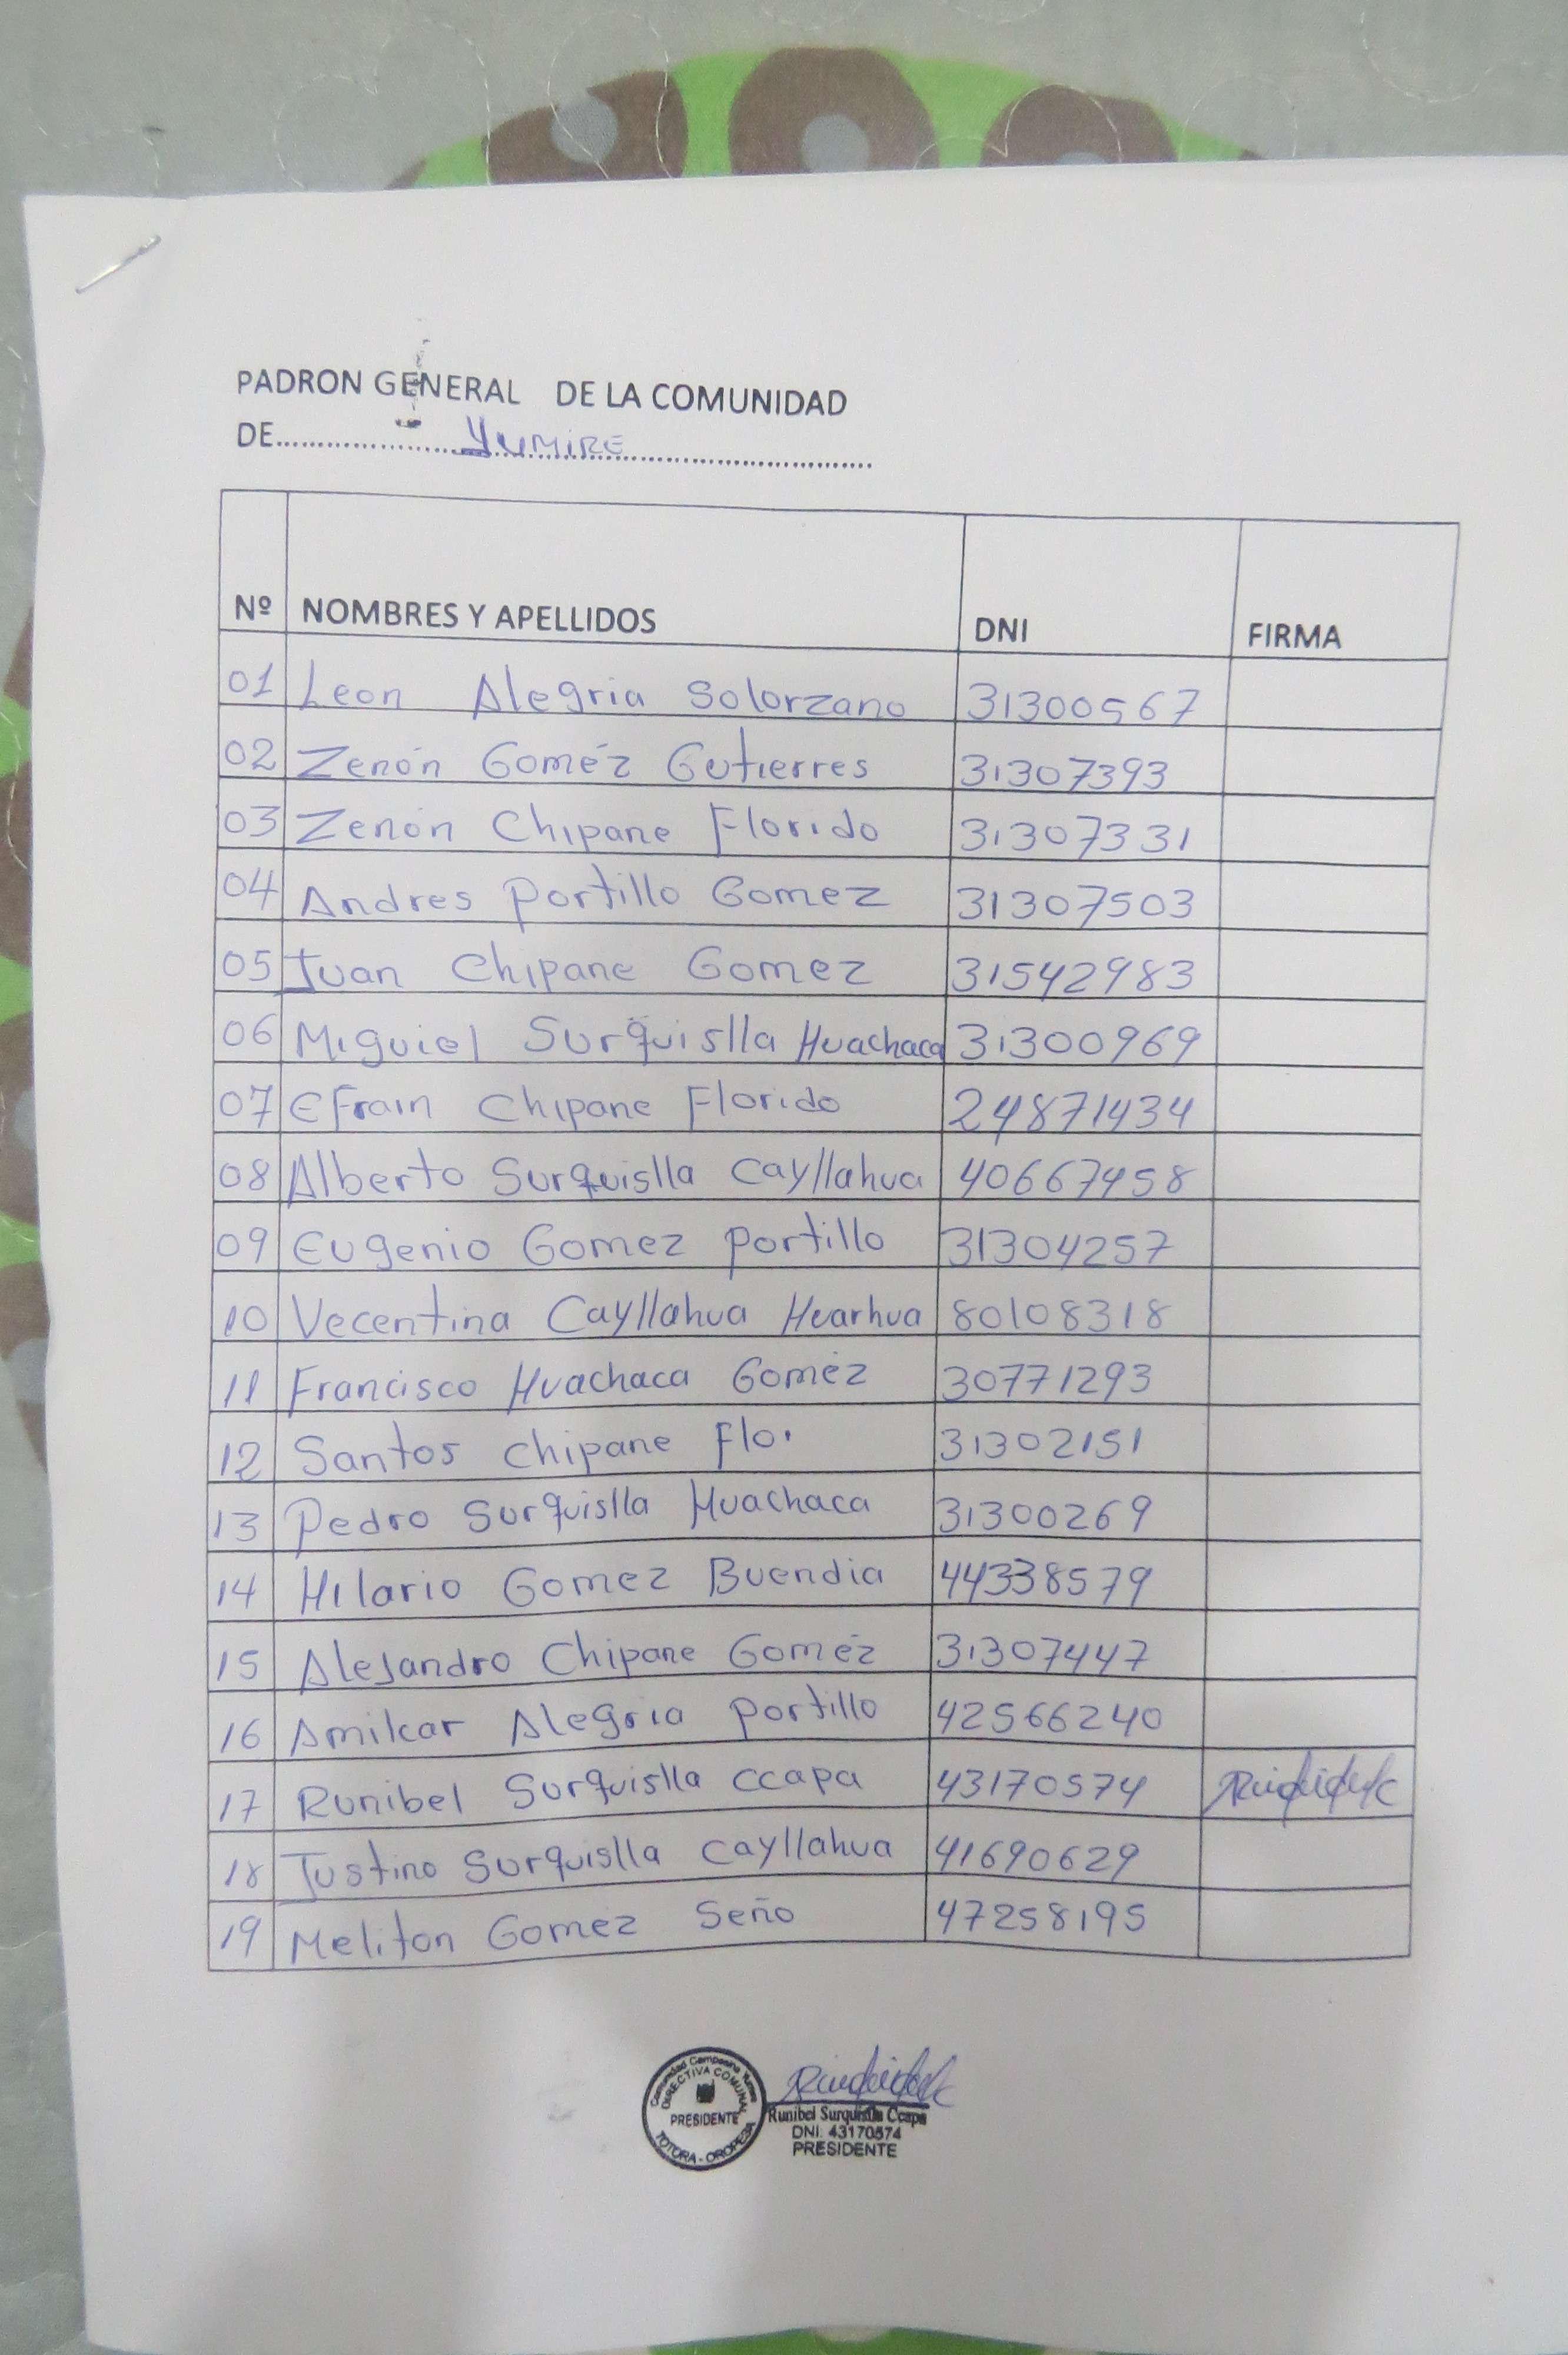 PADRON GENERAL DE LA COMUNIDAD
DE.....................YUMIRE.....................................
Nº NOMBRES Y APELLIDOS DNI FIRMA
01 Leon Alegria Solorzano 31300567
02 Zenón Goméz Gutierres 31307393
03 Zenón Chipane Florido 31307331
04 Andres Portillo Gomez 31307503
05 Juan Chipane Gomez 31542983
06 Miguiel Surquislla Huachaca 31300969
07 Efrain Chipane Florido 24871434
08 Alberto Surquislla Cayllahua 40667458
09 Eugenio Gomez Portillo 31304257
10 Vecentina Cayllahua Huarhua 80108318
11 Francisco Huachaca Goméz 30771293
12 Santos Chipane Flo. 31302151
13 Pedro Surquislla Huachaca 31300269
14 Hilario Gomez Buendia 44338579
15 Alejandro Chipane Goméz 31307447
16 Amilcar Alegria Portillo 42566240
17 Runibel Surquislla Ccapa 43170574
18 Justino Surquislla Cayllahua 41690629
19 Meliton Gomez Seño 47258195
Comunidad Campesina Yumire
DIRECTIVA COMUNAL
PRESIDENTE
TOTORA - OROPESA
Runibel Surquislla Ccapa
DNI. 43170574
PRESIDENTE